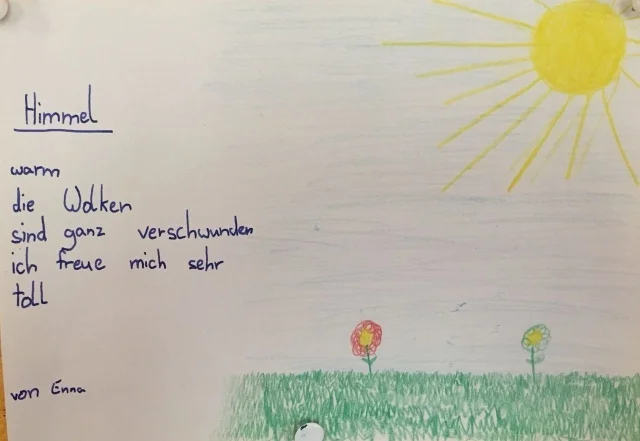 Himmel
warm
die Wolken
sind ganz verschwunden
ich freue mich sehr
toll
von Enna